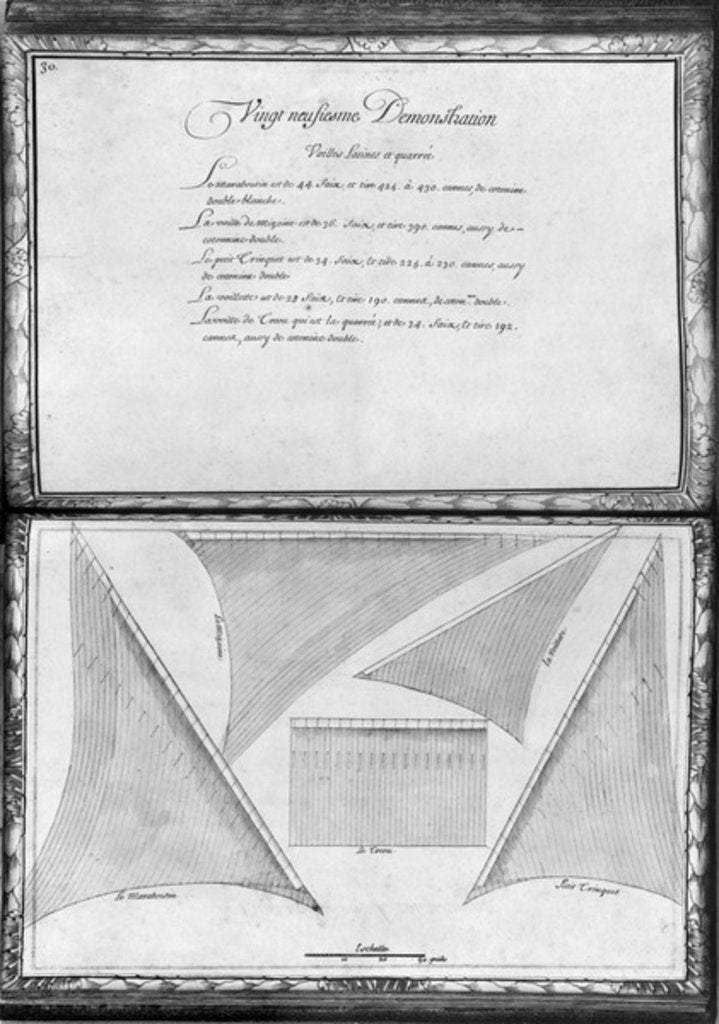 30.
Vingt neufiesme Demonstration
Voilles Latines et quarrée
Le maraboutin est de 44. Faix, et tire 424. à 430. cannes, de cotonine
double blanche.
La voille de Mizaine est de 36. Faix, et tire 390. cannes, aussy de
cotonnine double.
Le petit Trinquet est de 34. Faix, et tire 224. à 230. cannes, aussy
de cotonnine double
La voillette est de 28 Faix, et tire 190. cannes, de coton.ne double.
La voille de Treou qui est la quarrée; et de 24. Faix, et tire 192.
cannes, aussy de cotonnine double.
La Mizaine
La Voillette
Le Treou
Le Maraboutin
Petit Trinquet
Eschelle
10 20 30 pieds